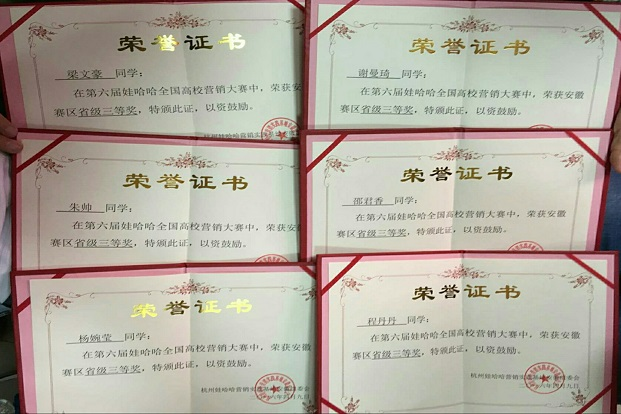 荣誉证书
梁文豪 同学：
在第六届娃哈哈全国高校营销大赛中，荣获安徽
赛区省级三等奖，特颁此证，以资鼓励。
杭州娃哈哈营销实
荣誉证书
谢曼琦 同学：
在第六届娃哈哈全国高校营销大赛中，荣获安徽
赛区省级三等奖，特颁此证，以资鼓励。
荣誉证书
朱帅 同学：
在第六届娃哈哈全国高校营销大赛中，荣获安徽
赛区省级三等奖，特颁此证，以资鼓励。
荣誉证书
邵君香 同学：
在第六届娃哈哈全国高校营销大赛中，荣获安徽
赛区省级三等奖，特颁此证，以资鼓励。
荣誉证书
杨婉莹 同学：
在第六届娃哈哈全国高校营销大赛中，荣获安徽
赛区省级三等奖，特颁此证，以资鼓励。
杭州娃哈哈营销实
六年四月九日
荣誉证书
程丹丹 同学：
在第六届娃哈哈全国高校营销大赛中，荣获安徽
赛区省级三等奖，特颁此证，以资鼓励。
杭州娃哈哈营销实
六年四月九日